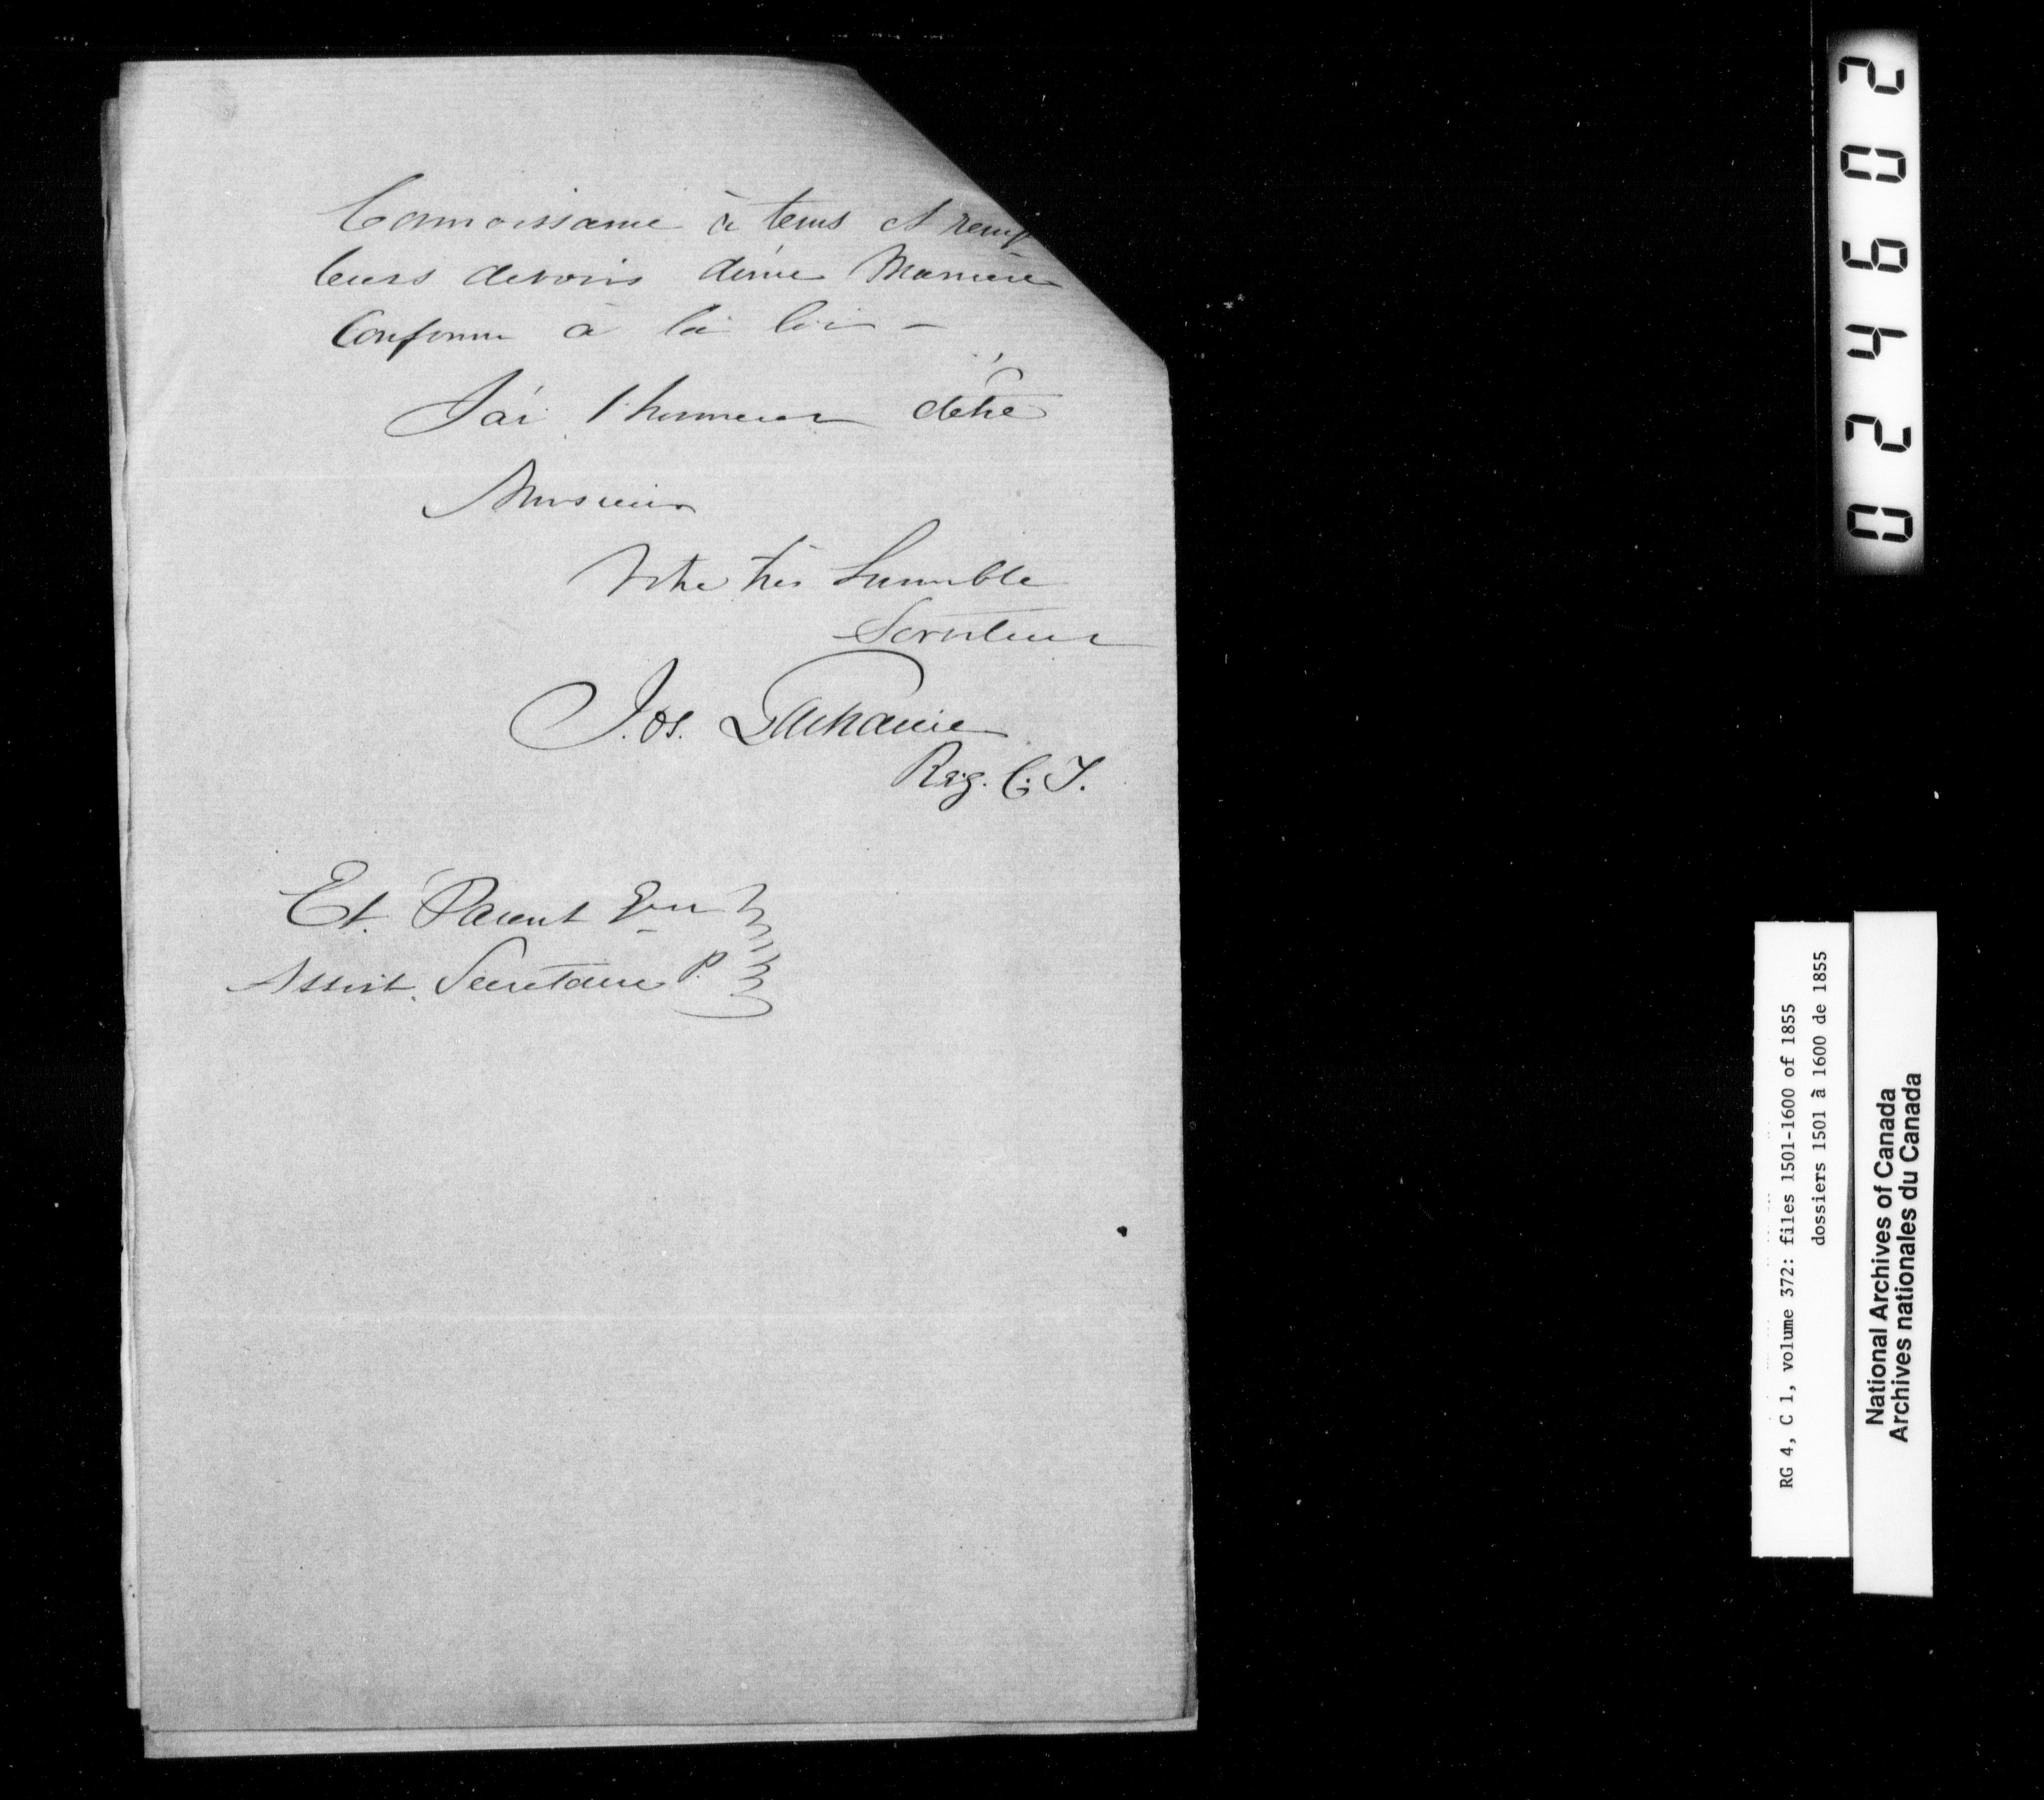 Connoissance à tems et remp
leurs devoirs d'une Manière
Conforme à la loi —
J'ai l'honneur d'être
Monsieur
Votre très humble
Serviteur
Jos.
Reg. C. T.
Et. Parent Ecr
Assist. Secretaire P.
024602
RG 4, C 1, volume 372: files 1501-1600 of 1855
dossiers 1501 à 1600 de 1855
National Archives of Canada
Archives nationales du Canada